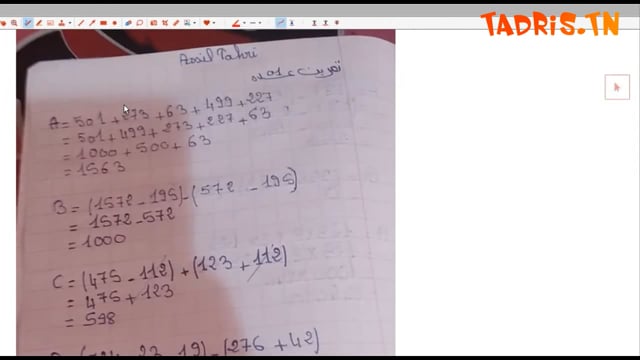 TADRIS.TN
Assil Tahri
تمرين عدد 01
A = 501 + 273 + 63 + 499 + 227
= 501 + 499 + 273 + 227 + 63
= 1000 + 500 + 63
= 1563
B = (1572 - 195) - (572 - 195)
= 1572 - 572
= 1000
C = (475 - 112) + (123 + 112)
= 475 + 123
= 598
- 23 - 19) - (276 + 42)